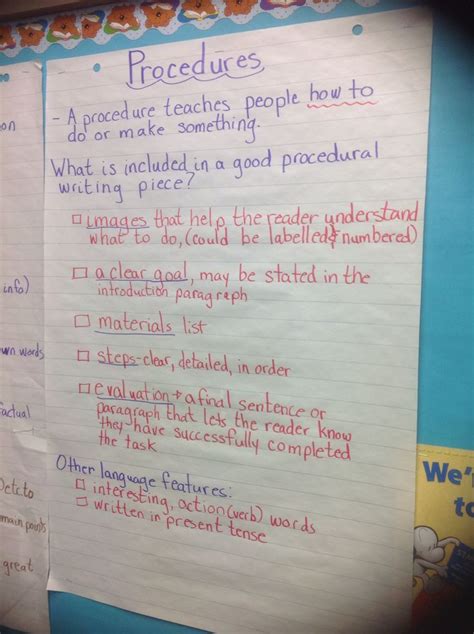 Procedures
- A procedure teaches people how to
do or make something.
What is included in a good procedural
writing piece?
□ images that help the reader understand
what to do, (could be labelled & numbered)
□ a clear goal, may be stated in the
introduction paragraph
□ materials list
□ steps - clear, detailed, in order
□ evaluation → a final sentence or
paragraph that lets the reader know
they have successfully completed
the task
Other language features:
□ interesting, action (verb) words
□ written in present tense
on
info)
wn words
actual
main points
great
We'r
to